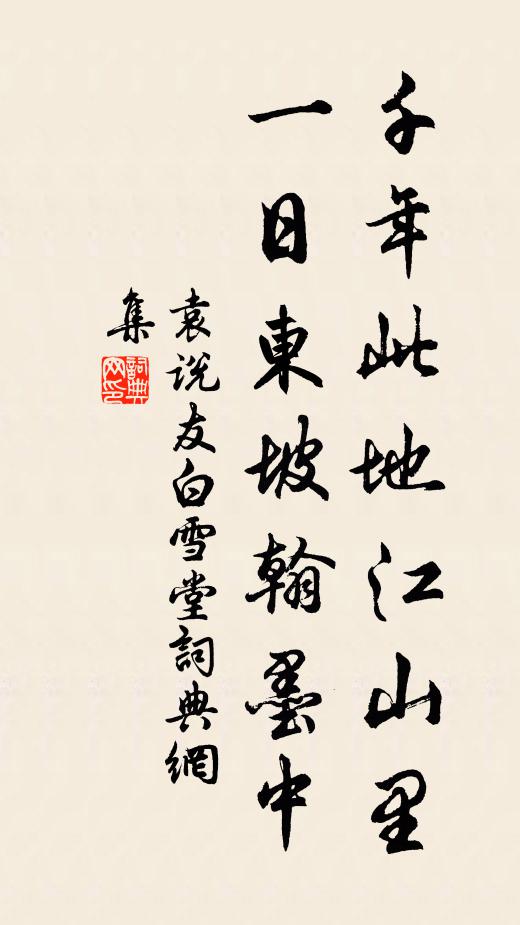 千年此地江山里
一日東坡翰墨中
袁说友白雪堂詞典網
集
詞典
网印